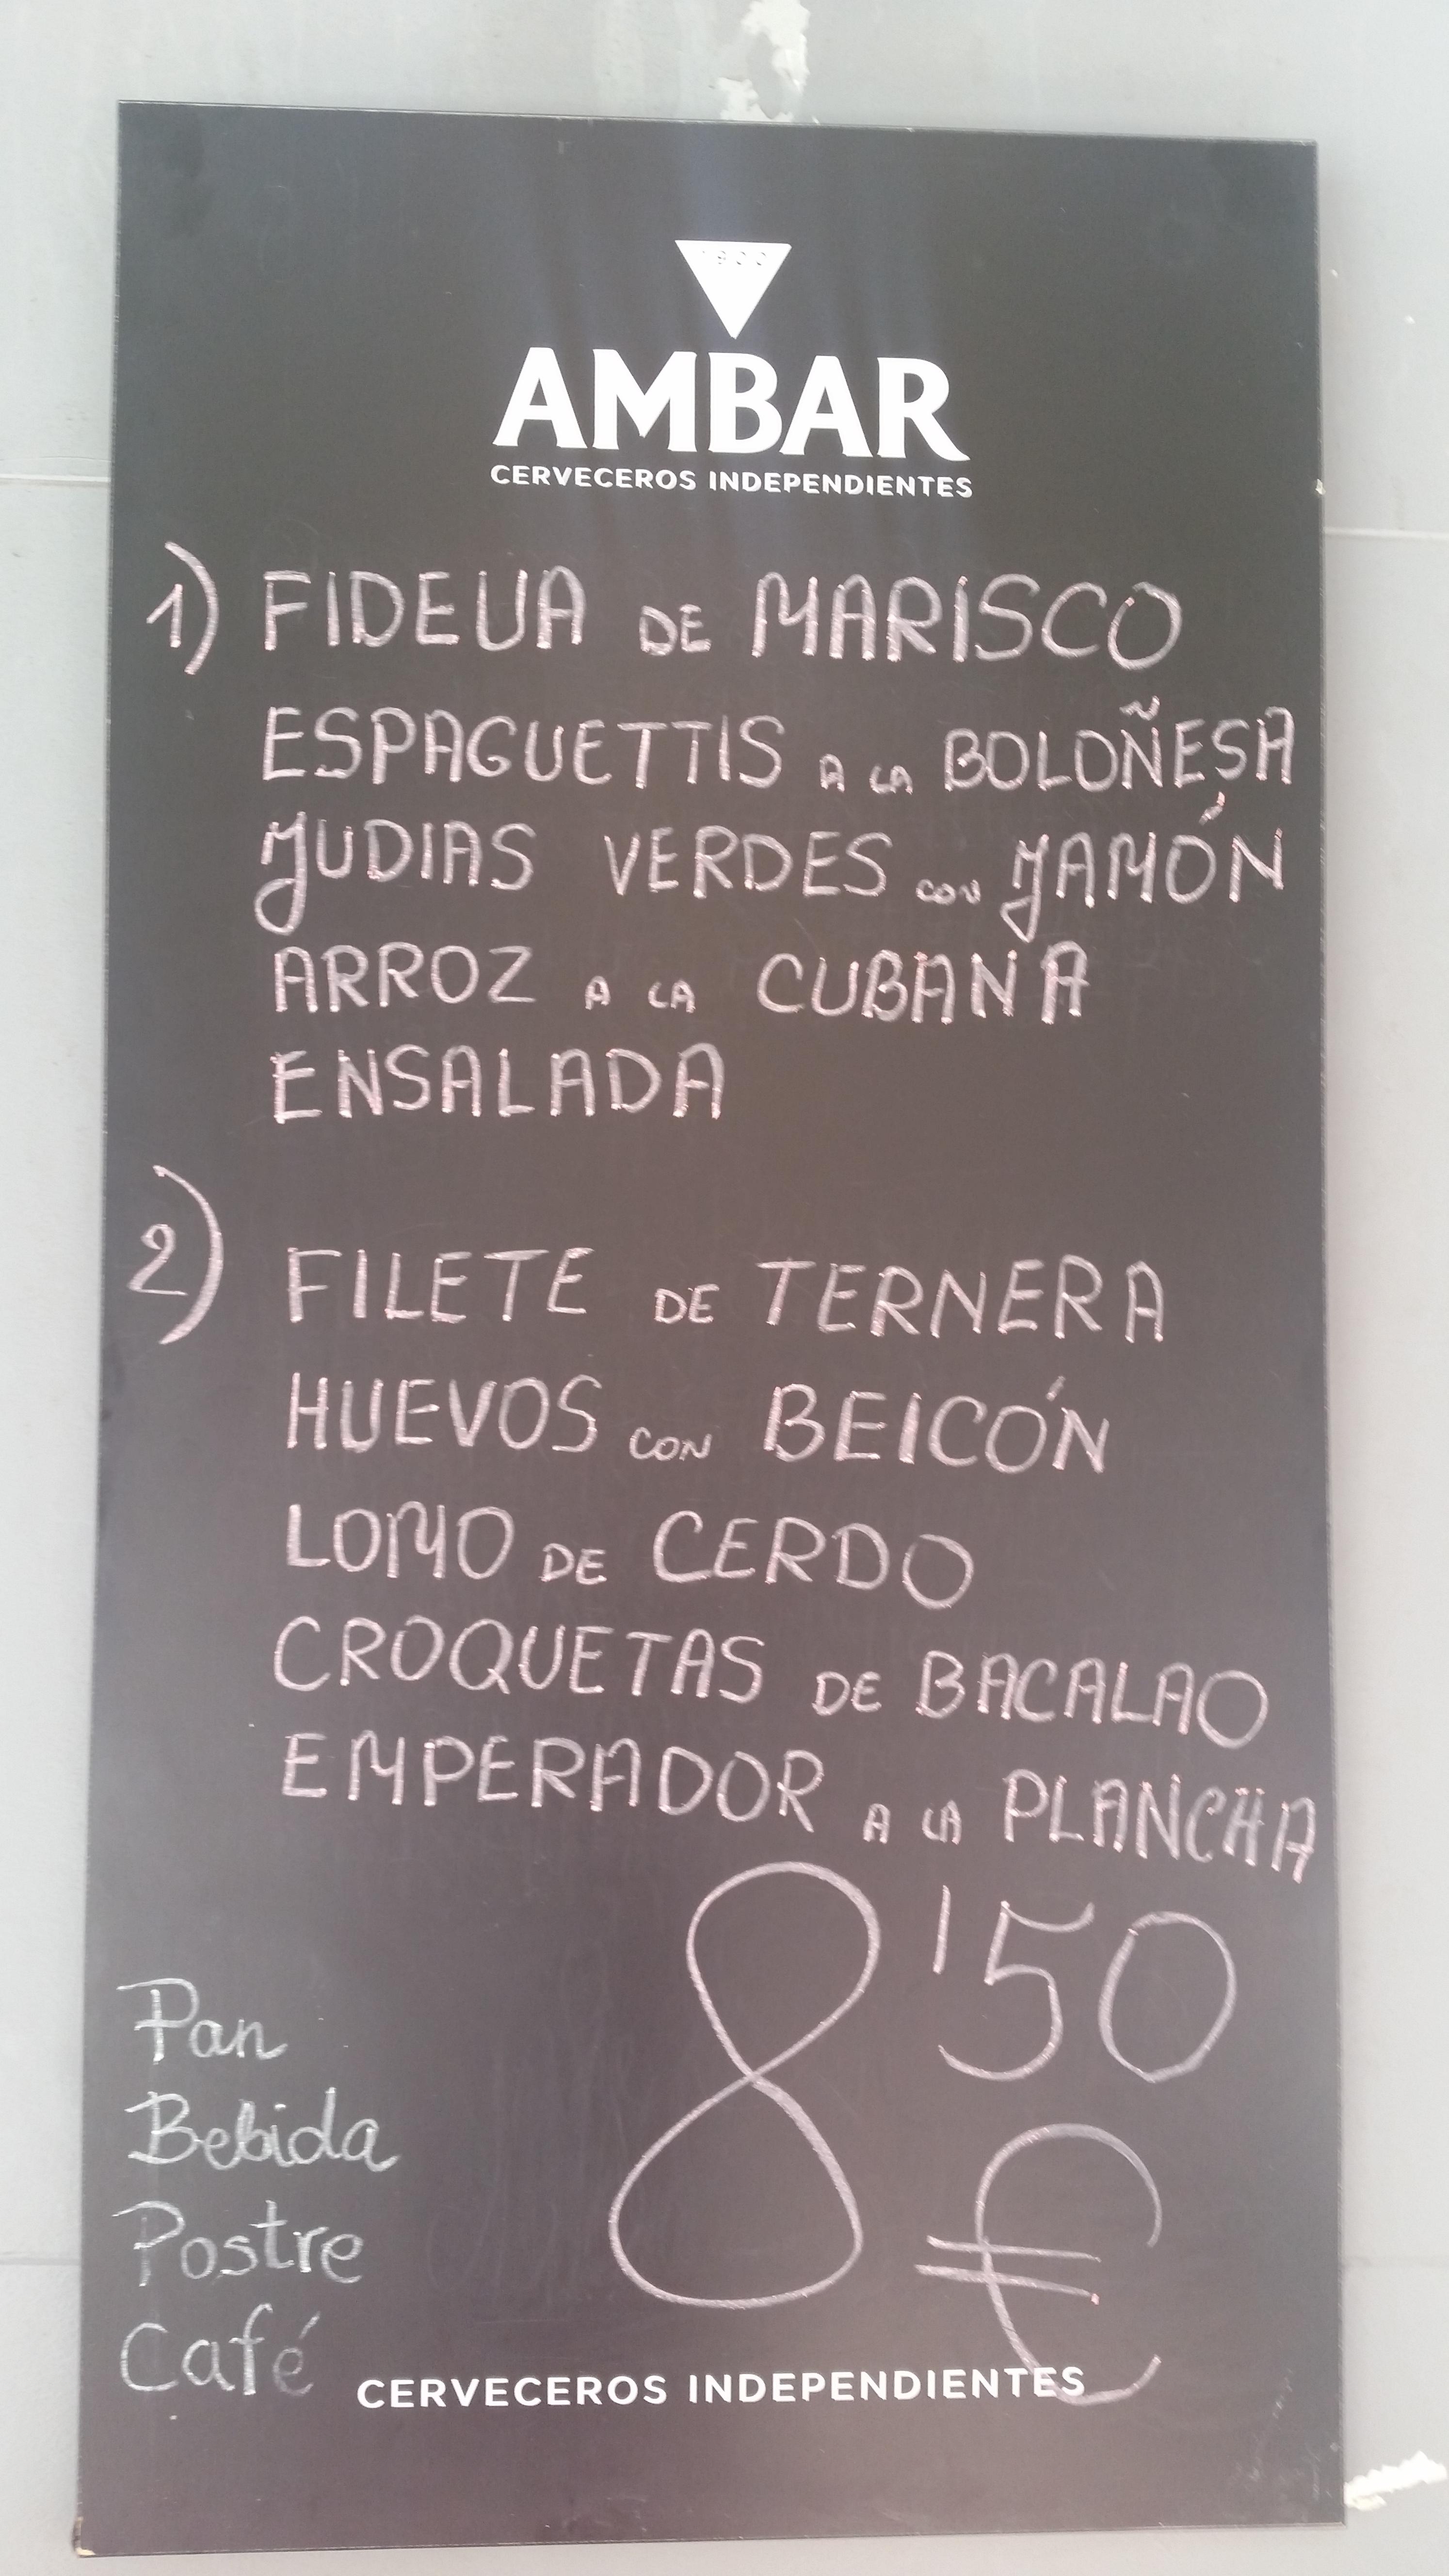 1900
AMBAR
CERVECEROS INDEPENDIENTES
1) FIDEUA DE MARISCO
ESPAGUETTIS A LA BOLOÑESA
JUDIAS VERDES CON JAMÓN
ARROZ A LA CUBANA
ENSALADA
2) FILETE DE TERNERA
HUEVOS CON BEICÓN
LOMO DE CERDO
CROQUETAS DE BACALAO
EMPERADOR A LA PLANCHA
8'50
€
Pan
Bebida
Postre
Café
CERVECEROS INDEPENDIENTES